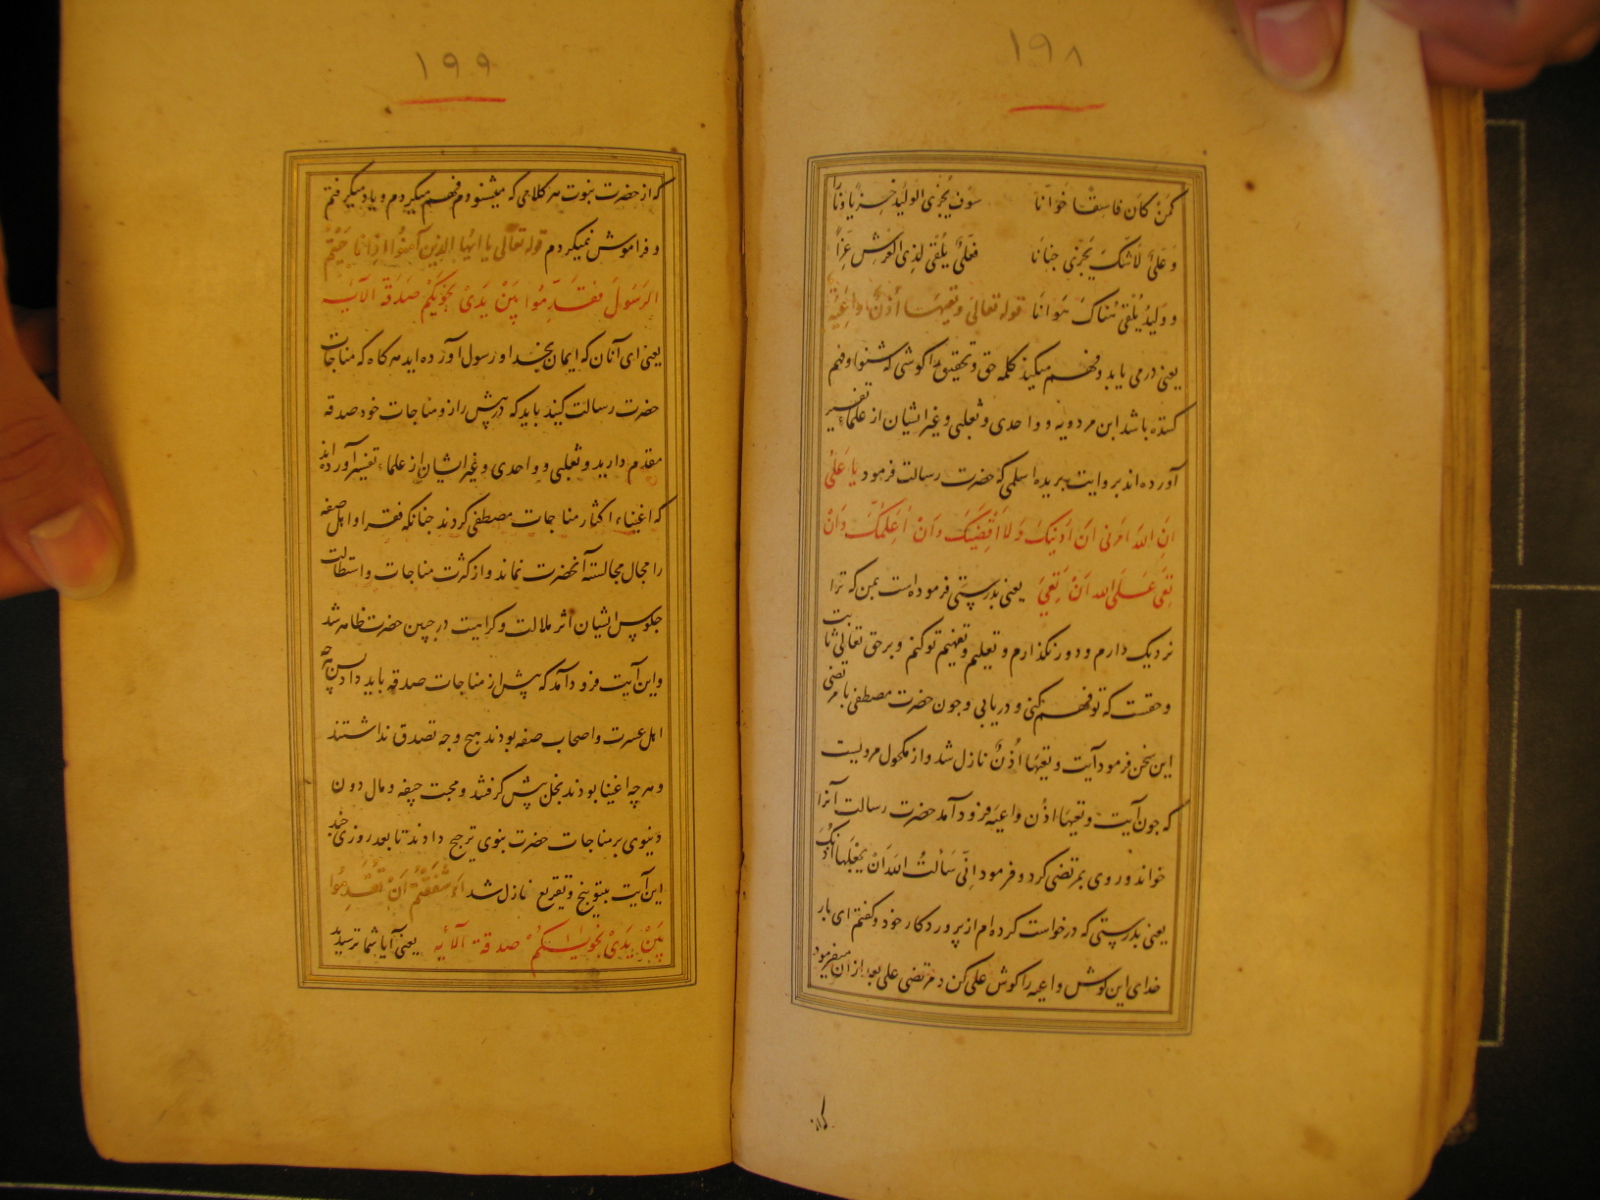 ۱۹۸
کمن کان فاسقا خوانا سوف یجزی الولید خزیا و نارا
و علی لاشک یجزی جنانا فعلی یلقی لذی العرش عزا
و ولید یلقی هناک هوانا قوله تعالی و تعیها اذن واعیة
یعنی درمی یابد و فهم میکند کلمه حق و تحقیق را کوشی که شنوا و فهم
کننده باشد ابن مردویه و واحدی و ثعلبی و غیر ایشان از علماء تفسیر
آورده اند بروایت بریده اسلمی که حضرت رسالت فرمود یا علی
ان الله امرنی ان ادنیک و لا اقصیک و ان اعلمک و ان
تعی و علی الله ان تعی یعنی بدرستی فرموده است بمن که ترا
نزدیک دارم و دور نکذارم و تعلیم و تفهیم تو کنم و بر حق تعالی ثابت
و حقست که تو فهم کنی و دریابی و چون حضرت مصطفی با مرتضی
این سخن فرمود آیت و تعیها اذن نازل شد و از مکحول مرویست
که چون آیت و تعیها اذن واعیه فرود آمد حضرت رسالت آنرا
خواند و روی بمرتضی کرد و فرمود انی سألت الله ان یجعلها اذنک
یعنی بدرستی که درخواست کرده ام از پروردکار خود و کفتم ای بار
خدای این کوش واعیه را کوش علی کن و مرتضی علی بعد از آن میفرمود
که از
۱۹۹
که از حضرت نبوت هر کلامی که میشنودم فهم میکردم و یاد میکرفتم
و فراموش نمیکردم قوله تعالی یا ایها الذین آمنوا اذا ناجیتم
الرسول فقدموا بین یدی نجویکم صدقة الآیه
یعنی ای آنان که ایمان بخدا و رسول آورده اید هر کاه که مناجات
حضرت رسالت کنید باید که در پیش راز و مناجات خود صدقه
مقدم دارید و ثعلبی و واحدی و غیر ایشان از علماء تفسیر آورده اند
که اغنیاء اکثار مناجات مصطفی کردند چنانکه فقرا و اهل صفه
را مجال مجالسته آنحضرت نماند و از کثرت مناجات و استطالت
جلوس ایشان اثر ملالت و کراهیت در جبین حضرت ظاهر شد
و این آیت فرود آمد که پیش از مناجات صدقه باید داد پس هر چه
اهل عسرت و اصحاب صفه بودند هیچ وجه تصدق نداشتند
و هر چه اغنیا بودند بخل پیش کرفتند و محبت جیفه و مال دون
دنیوی بر مناجات حضرت نبوی ترجیح دادند تا بعد روزی چند
این آیت بتوبیخ و تقریع نازل شد ءاشفقتم ان تقدموا
بین یدی نجویکم صدقة الآیه یعنی آیا شما ترسیدید